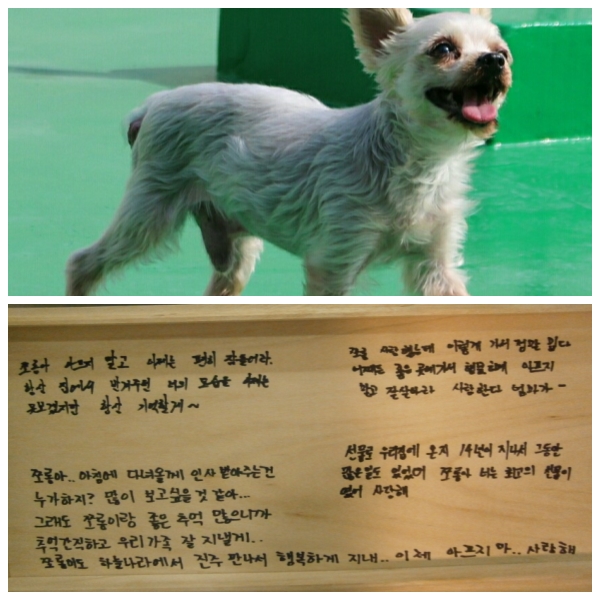 쪼롱아 아프지 말고 이제는 편히 잠들어라.
항상 집에서 반겨주던 너의 모습을 이제는
못보겠지만 항상 기억할게~
쪼롱 사랑했는데 이렇게 가서 정말 밉다
이제는 좋은 곳에가서 행복하게 아프지
말고 잘살아라 사랑한다 엄마가-
쪼롱아.. 아침에 다녀올게 인사 받아주는건
누가하지? 많이 보고싶을 것 같아...
그래도 쪼롱이랑 좋은 추억 많으니까
추억간직하고 우리가족 잘 지낼게..
쪼롱이도 하늘나라에서 진주 만나서 행복하게 지내.. 이제 아프지 마.. 사랑해
선물로 우리집에 온지 14년이 지나서 그동안
많은일도 있었어 쪼롱아 너는 최고의 선물이
였어 사랑해